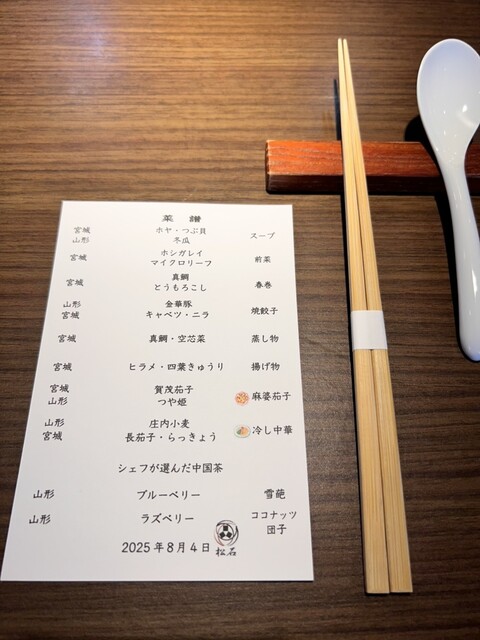 菜譜
宮城 ホヤ・つぶ貝 スープ
山形 冬瓜
宮城 ホシガレイ 前菜
マイクロリーフ
宮城 真鯛 春巻
とうもろこし
山形 金華豚 焼餃子
宮城 キャベツ・ニラ
宮城 真鯛・空芯菜 蒸し物
宮城 ヒラメ・四葉きゅうり 揚げ物
宮城 賀茂茄子 麻婆茄子
山形 つや姫
山形 庄内小麦 冷し中華
宮城 長茄子・らっきょう
シェフが選んだ中国茶
山形 ブルーベリー 雪葩
山形 ラズベリー ココナッツ
団子
2025年8月4日 松石